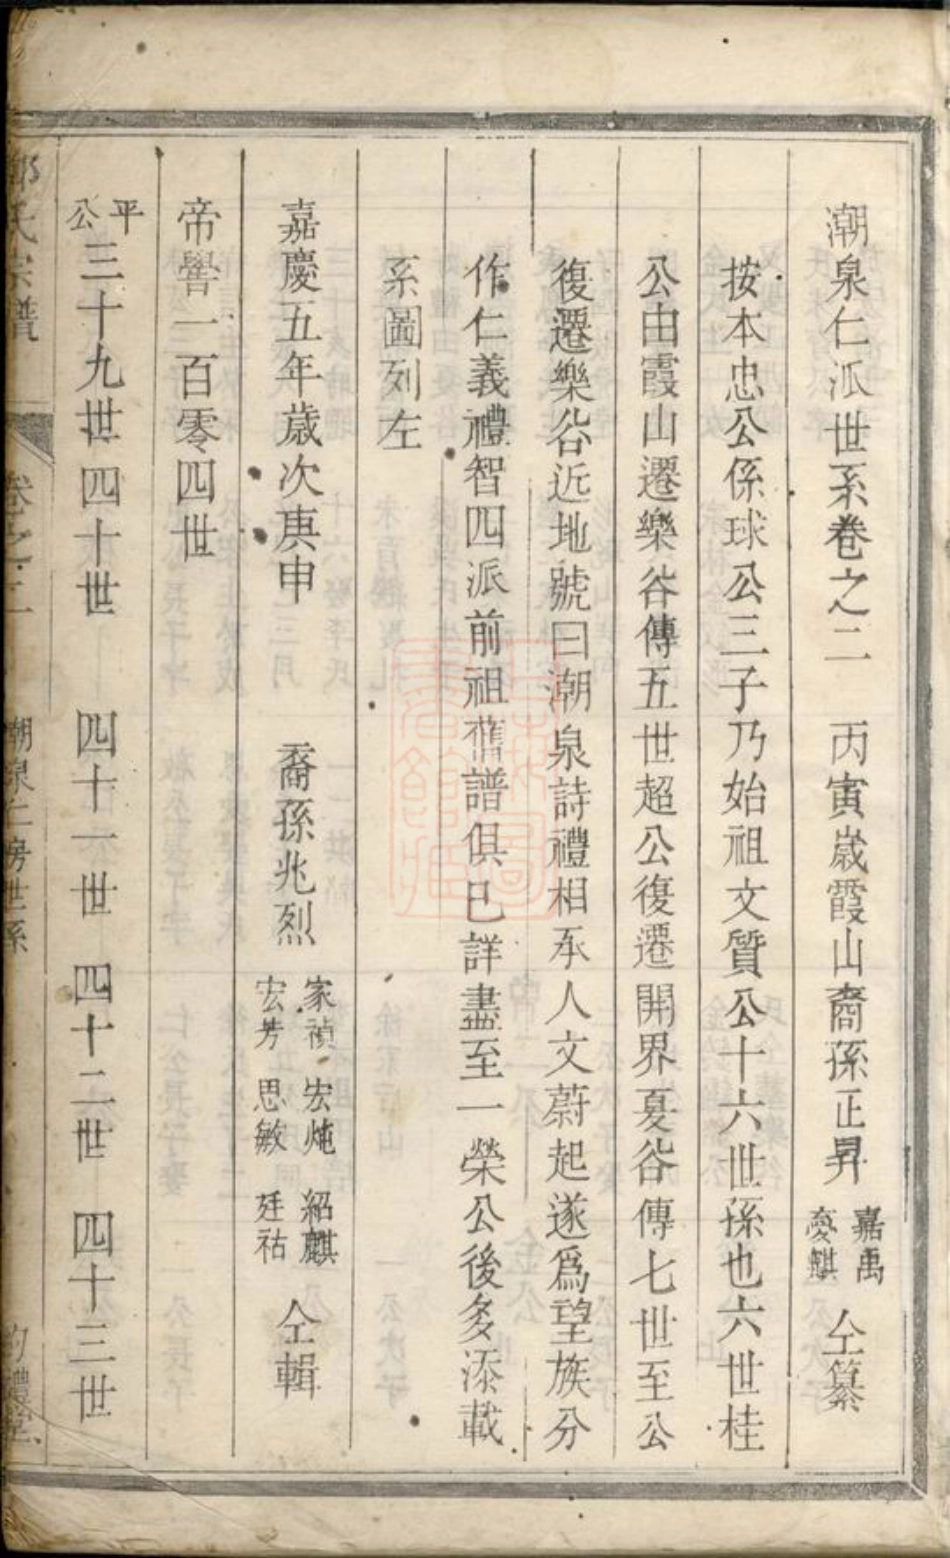 潮泉仁派世系卷之二　丙寅歲霞山裔孫正昇　嘉禹　夔麒　仝纂
按本忠公係球公三子乃始祖文質公十六世孫也六世桂
公由霞山遷樂谷傳五世超公復遷開界夏谷傳七世至公
復遷樂谷近地號曰潮泉詩禮相承人文蔚起遂爲望族分
作仁義禮智四派前祖舊譜俱已詳盡至一榮公後多添載
系圖列左
嘉慶五年歲次庚申　裔孫兆烈　家禎　宏芳　宏炖　思敏　紹麒　廷祜　仝輯
帝嚳一百零四世
平公三十九世　四十世　四十一世　四十二世　四十三世
氏宗譜　卷之二　潮泉仁房世系　禮堂